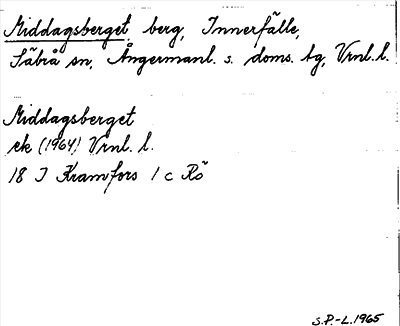 Middagsberget, berg, Innerfälle,
Säbrå sn, Ångermanl. s. doms. tg, Vrnl. l.
Middagsberget
ek (1964) Vrnl. l.
18 I Kramfors 1 c Rö
S.P.-L. 1965